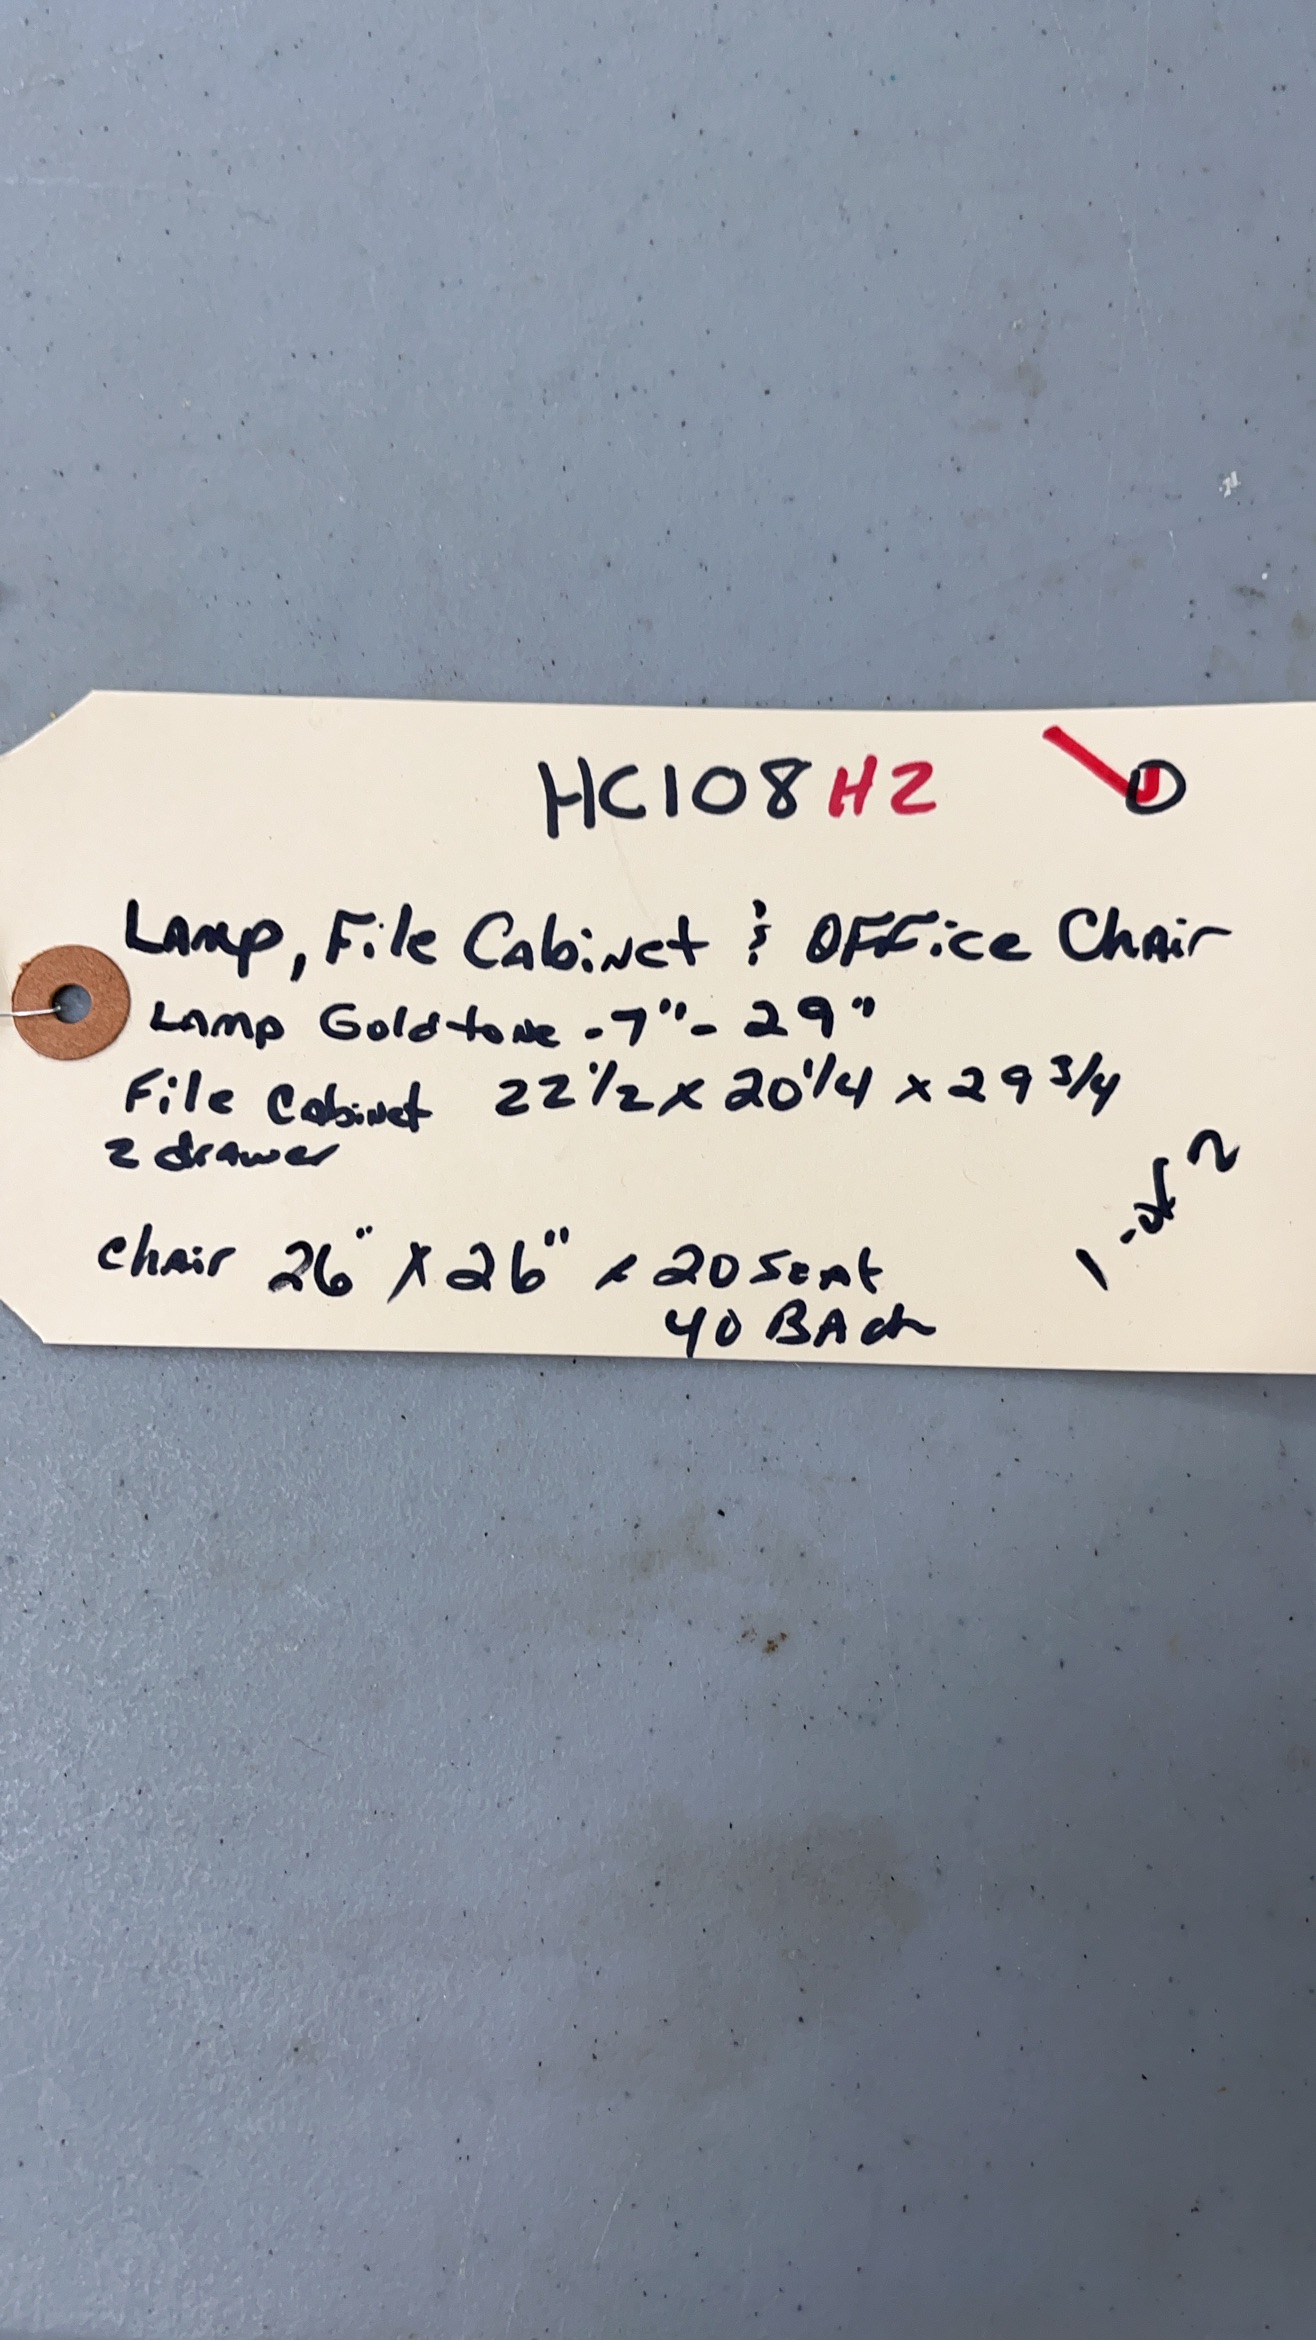 HC108 H2 D
LAmp, File CabiNet & OFFice ChAir
LAmp Goldtone - 7" - 29"
File Cabinet 22 1/2 x 20 1/4 x 29 3/4
2 drawer
1 of 2
chair 26" X 26" x 20 Seat
40 BAck